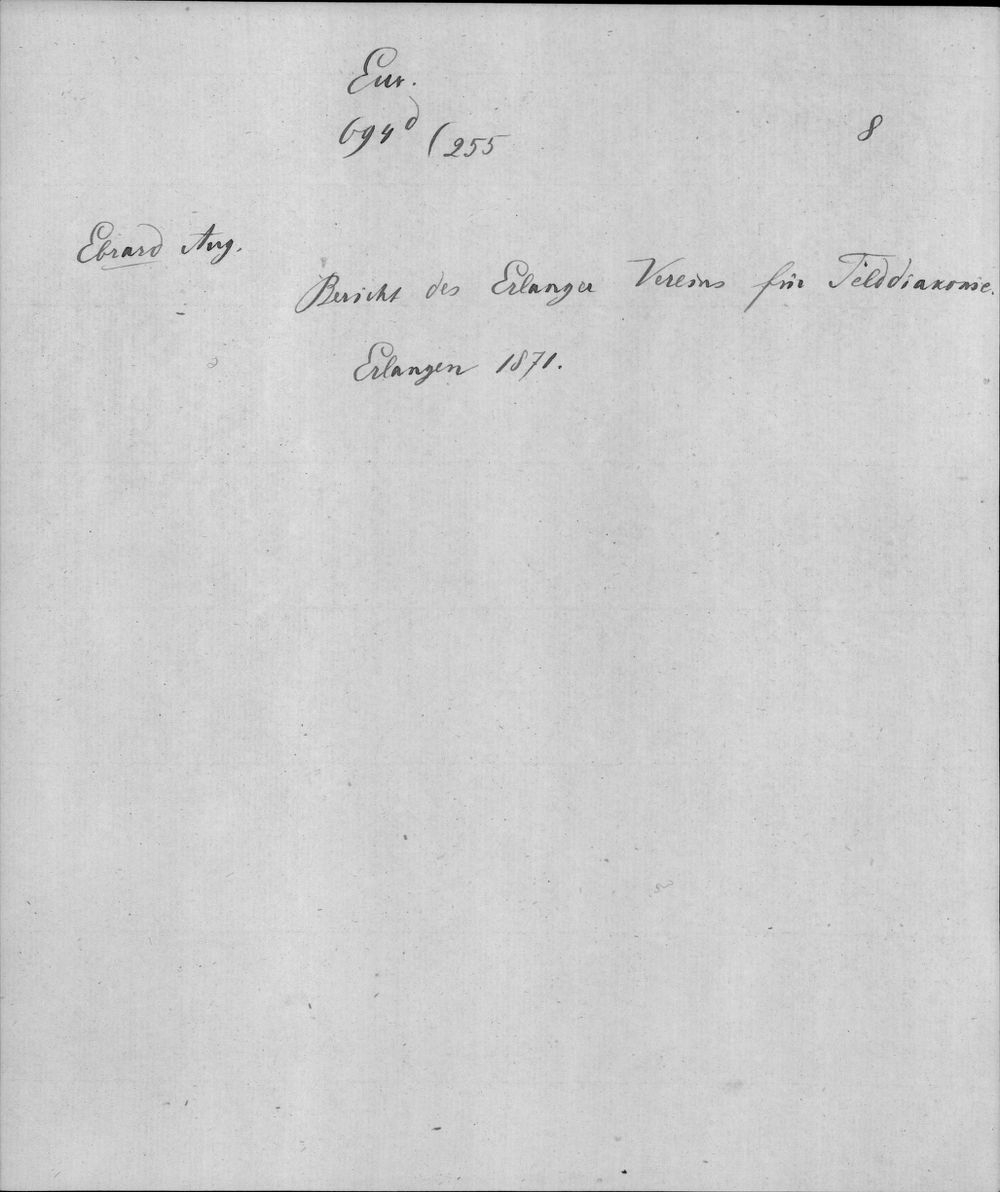 Eur.
694 d (255 8
Ebrard Aug.
Bericht des Erlanger Vereins für Felddiakonie.
Erlangen 1871.